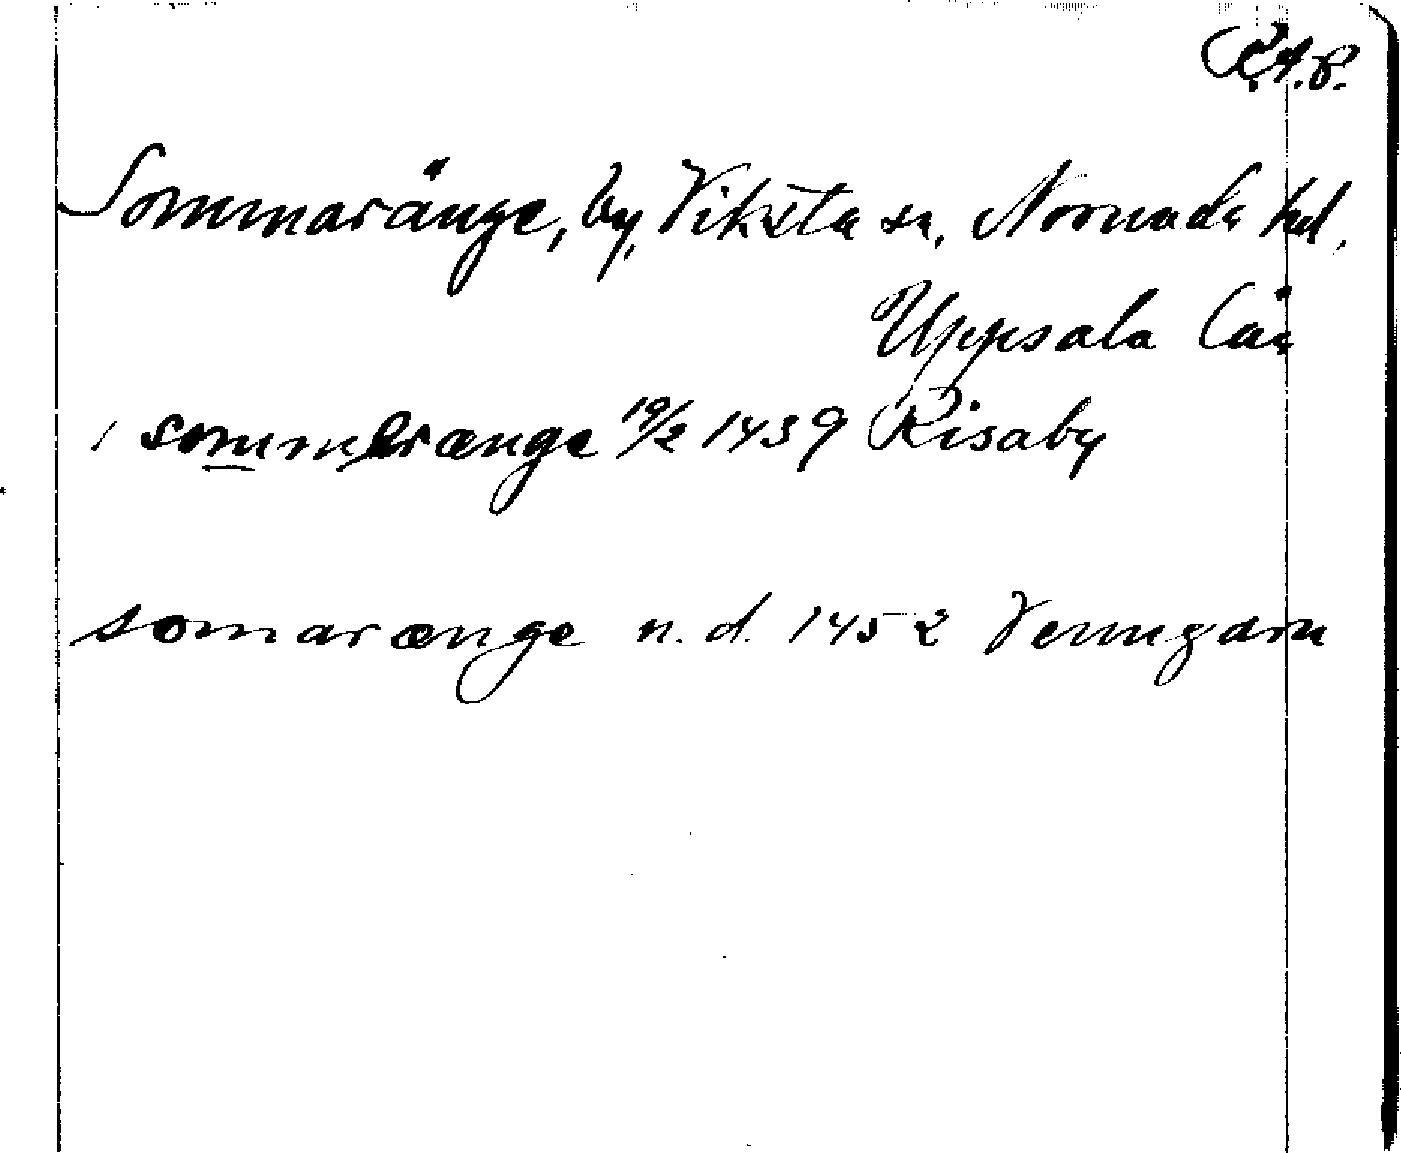 R.A.P.
Sommaränge, by, Viksta sn, Norunda hd,
Uppsala län
i sommerænge 19/2 1439 Risaby
somarænge n. d. 1452 Venngarn